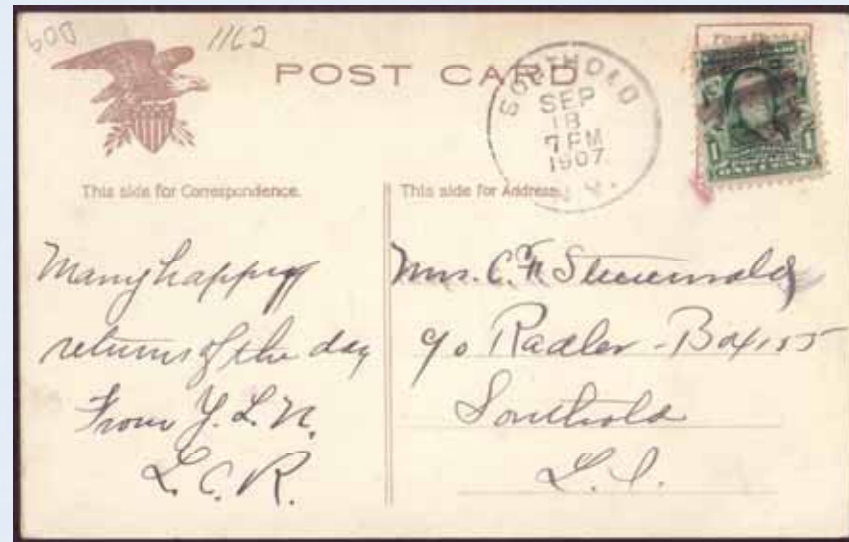 600
1162
POST CARD
SOUTHOLD
SEP
18
7 PM
1907
N.Y.
1
This side for Correspondence.
This side for Address.
Many happy
returns of the day
From Y. L. N.
L. C. R.
Mrs. C. F.
c/o Radler - Box 155
Southold
L. I.